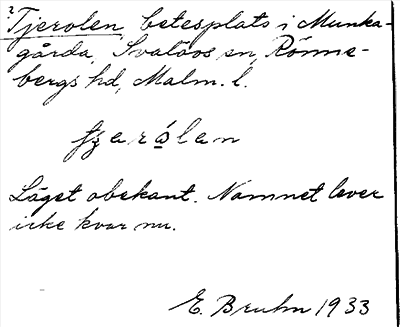 ? Tjerolen, betesplats i Munka-
gårda, Svalöos sn, Rönne-
bergs hd, Malm. l.
Läget obekant. Namnet lever
icke kvar nu.
E. Bruhn 1933